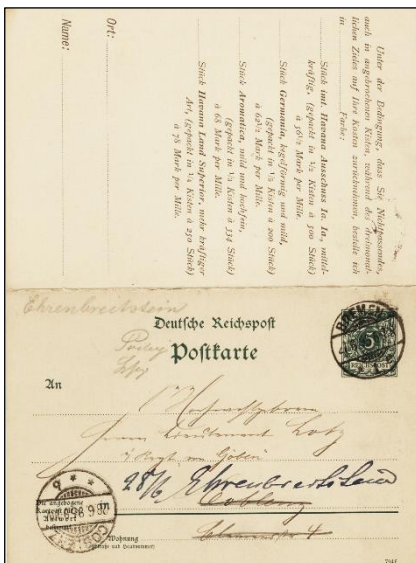 Unter der Bedingung, dass Sie Nichtpassendes,
auch in angebrochenen Kisten, während des dreimonat-
lichen Zieles auf Ihre Kosten zurücknehmen, bestelle ich
in Farbe:
Stück imt. Havana Ausschuss Ia. Ia, mittel-
kräftig, (gepackt in 1/2 Kisten à 500 Stück)
à 56½ Mark per Mille.
Stück Germania, kegelförmig und mild,
(gepackt in 1/5 Kisten à 200 Stück)
à 62½ Mark per Mille.
Stück Aromatica, mild und hochfein,
(gepackt in 1/3 Kisten à 334 Stück)
à 68 Mark per Mille.
Stück Havana Land Superior, mehr kräftiger
Art, (gepackt in 1/4 Kisten à 250 Stück)
à 78 Mark per Mille.
Ort:
Name:
Ehrenbreitstein
Deutsche Reichspost
Postkarte
BREMEN
5
REICHSPOST
An
Herrn Lieutenant Lotz
28/6 Ehrenbreitstein
Coblenz
in
Die angebogene
Karte ist für die
Antwort
bestimmt
COBLENZ
Wohnung
(Straße und Hausnummer)